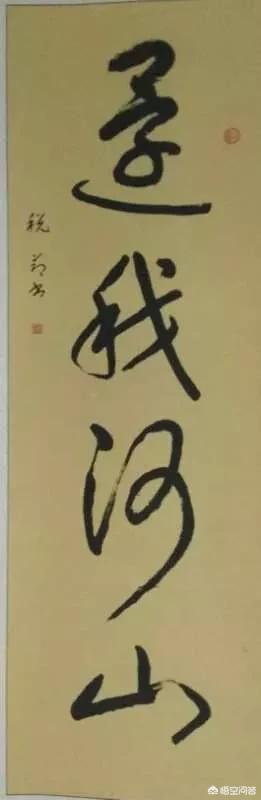 還我河山
税
悟空问答